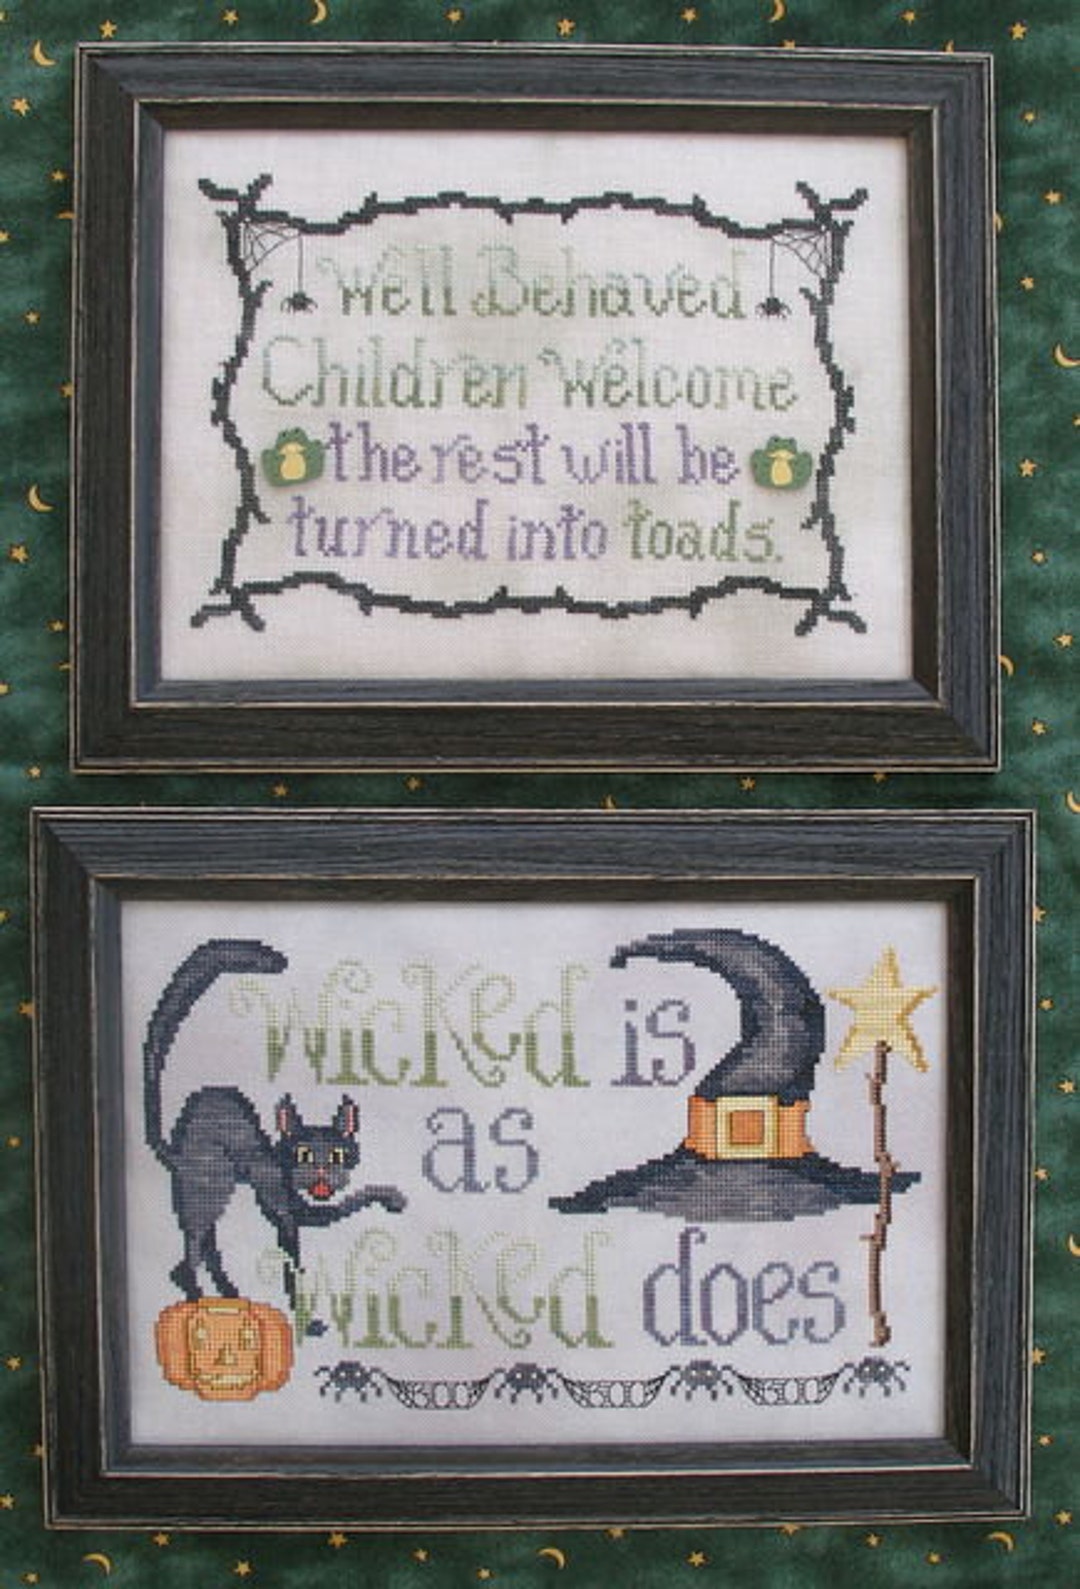 Well Behaved
Children Welcome
the rest will be
turned into toads.
Wicked is
as
Wicked does
BOO BOO BOO